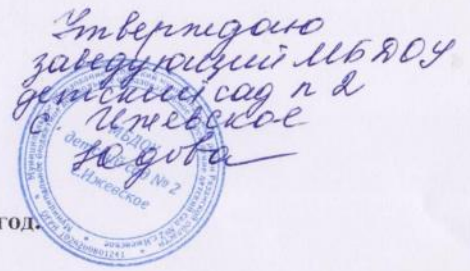 Утверждаю
заведующий МБДОУ
детский сад п 2
с. Ижевское
Юдова
МБДОУ
детский сад № 2
с.Ижевское
год.